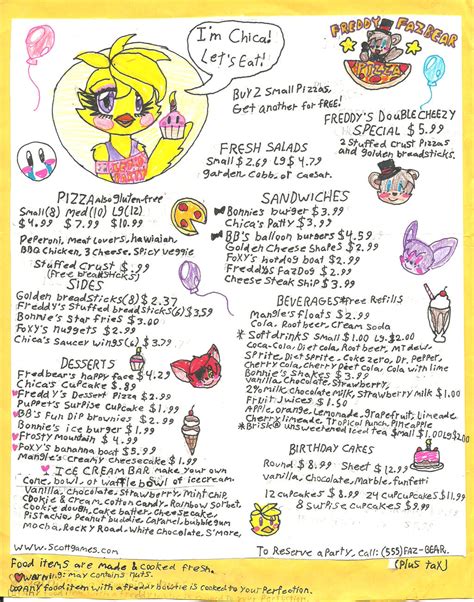 I'm Chica!
Let's Eat!
FREDDY FAZBEAR
PIZZA
BUY 2 Small Pizzas,
Get another for FREE!
FREDDY'S DOUBLE CHEEZY
SPECIAL $5.99
2 Stuffed Crust Pizzas
and golden breadsticks.
FRESH SALADS
Small $2.69 L9 $4.79
garden, cobb, or caesar.
PIZZA also gluten-free
Small(8) Med(10) L9(12)
$4.99 $7.99 $10.99
Peperoni, Meat Lovers, hawaiian,
BBQ Chicken, 3 Cheese, Spicy veggie
Stuffed Crust $.99
(Free breadsticks)
SIDES
Golden breadsticks(8) $2.37
Freddy's Stuffed breadsticks $3.59
Bonnie's star fries $3.00
Foxy's nuggets $2.99
Chica's Saucer wings(6) $3.79
DESSERTS
Fredbear's happy face $4.29
Chica's Cupcake $.89
Freddy's Dessert Pizza $2.99
Puppet's Surpise Cupcake $1.99
BB's Fun Dip brownies $2.99
Bonnie's ice burger $1.99
Frosty Mountain $4.99
Foxy's bananna boat $5.99
Mangle's Creamy Cheesecake $1.99
ICE CREAM BAR make your own
Cone, bowl, or waffle bowl of icecream.
Vanilla, Chocolate, Strawberry, Mint chip,
Cookie & Cream, Cotton Candy, Rainbow Sorbet,
Cookie dough, Cake batter, Cheesecake,
Pistachio, Peanut buddie, Caramel, bubblegum
Mocha, Rocky Road, White Chocolate, S'more,
www.Scottgames.com
SANDWICHES
Bonnie's burger $3.99
Chica's Patty $3.99
BB's balloon burgers $4.59
Golden Cheese Shapes $2.99
Foxy's hotdog boat $2.99
Freddy's FazDog $2.99
Cheese Steak Ship $3.99
BEVERAGES *free Refills
Mangle's floats $2.99
Cola, Root beer, Cream Soda
* Soft drinks Small $1.00 L9 $2.00
Coca-Cola, Diet cola, Root beer, MT dew,
Sprite, Diet sprite, Coke zero, Dr. Pepper,
Cherry Cola, Cherry Diet Cola, Cola with lime
Bonnie's Shakes $3.99
vanilla, Chocolate, Strawberry,
2% milk, chocolate milk, Strawberry Milk $1.00
Fruit Juices $1.50
Apple, orange, Lemonade, grapefruit, Limeade
Cherry limeade, Tropical Punch, Pineapple
* Brisk® unsweetened Iced tea Small $1.00 L9 $2.00
BIRTHDAY CAKES
Round $8.99 Sheet $12.99
vanilla, Chocolate, Marble, funfetti
12 cupcakes $8.99 24 cupcupcakes $11.99
8 surprise cupcakes $9.99
To Reserve a Party, call: (555) FAZ-BEAR.
(Plus tax)
Food items are made & cooked fresh.
Warning: may contains nuts.
Any food item with a freddy bowtie is cooked to your Perfection.